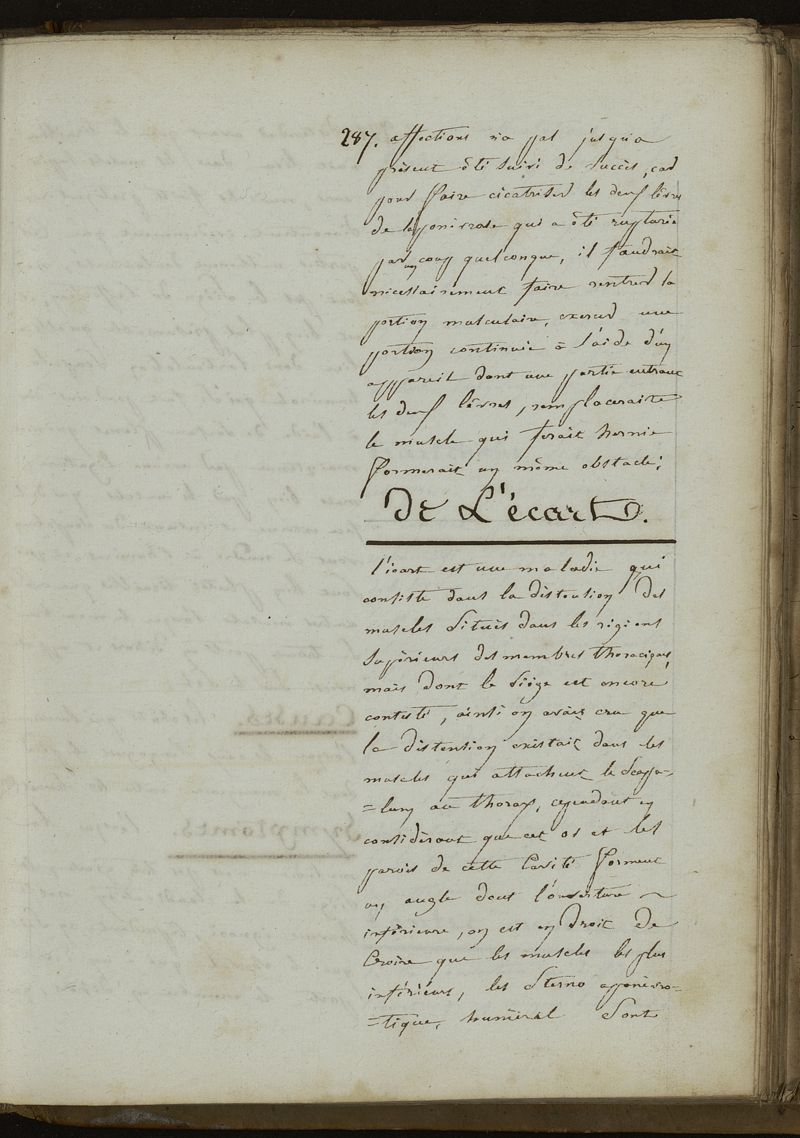 287. affections n'a pas jusqu'a
présent été suivi de succès, car
pour faire cicatriser les deux lèvres
de l'aponivrose qui a été rupturie
par un coup quelconque, il faudrait
nicessairement faire rentrer la
portion musculaire, exercer une
portion continuie à l'aide d'un
appareil dont une partie entrant
les deux lèvres, remplacerait
le muscle qui ferait hernie
formerait un même obstacle;
De L'écart.
l'écart est une maladie qui
consiste dans la distention des
muscles situés dans les régions
supérieurs des membres thoraciques,
mais dont le siège est encore
contesté, ainsi on avait cru que
la distention existait dans les
muscles qui attachent le scapu-
=lum au thorax, cependant en
considérant que cet os et les
parois de cette cavité forment
un angle dont l'ouverture
inférieure, on est en droit de
croire que les muscles les plus
inférieurs, les sterno aponévro=
=tique, huméral sont